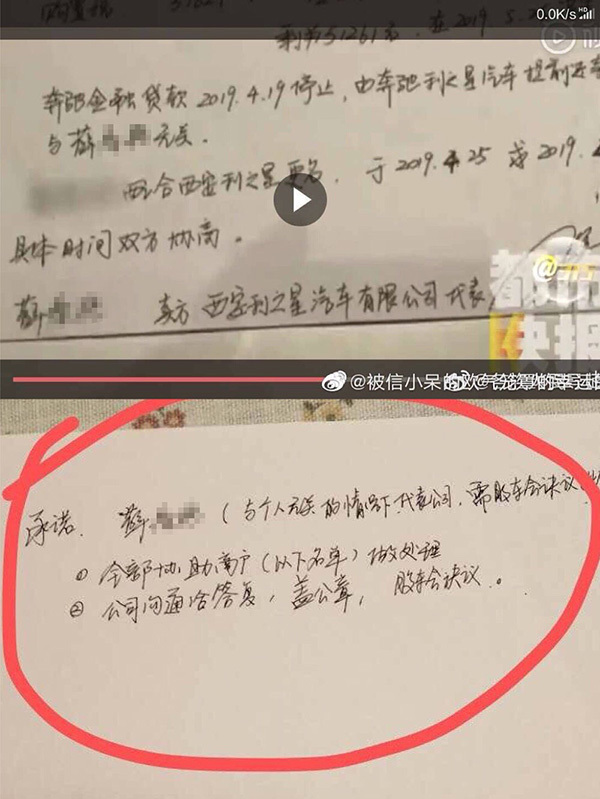 0.0K/s HD
剩余51261元，在2019.5.2
奔驰金融贷款 2019.4.19停止，由奔驰利之星汽车提前还
与薛 无关.
配合西安利之星更名. 于 2019.4.25 或 2019.
具体时间双方协商。
薛 卖方 西安利之星汽车有限公司 代表
都市
快报
@被信小呆
承诺. 薛 （与个人无关的情况下代表公司，需股东会决议
① 全部协助商户（以下名单）做处理
② 公司沟通给答复，盖公章， 股东会决议。